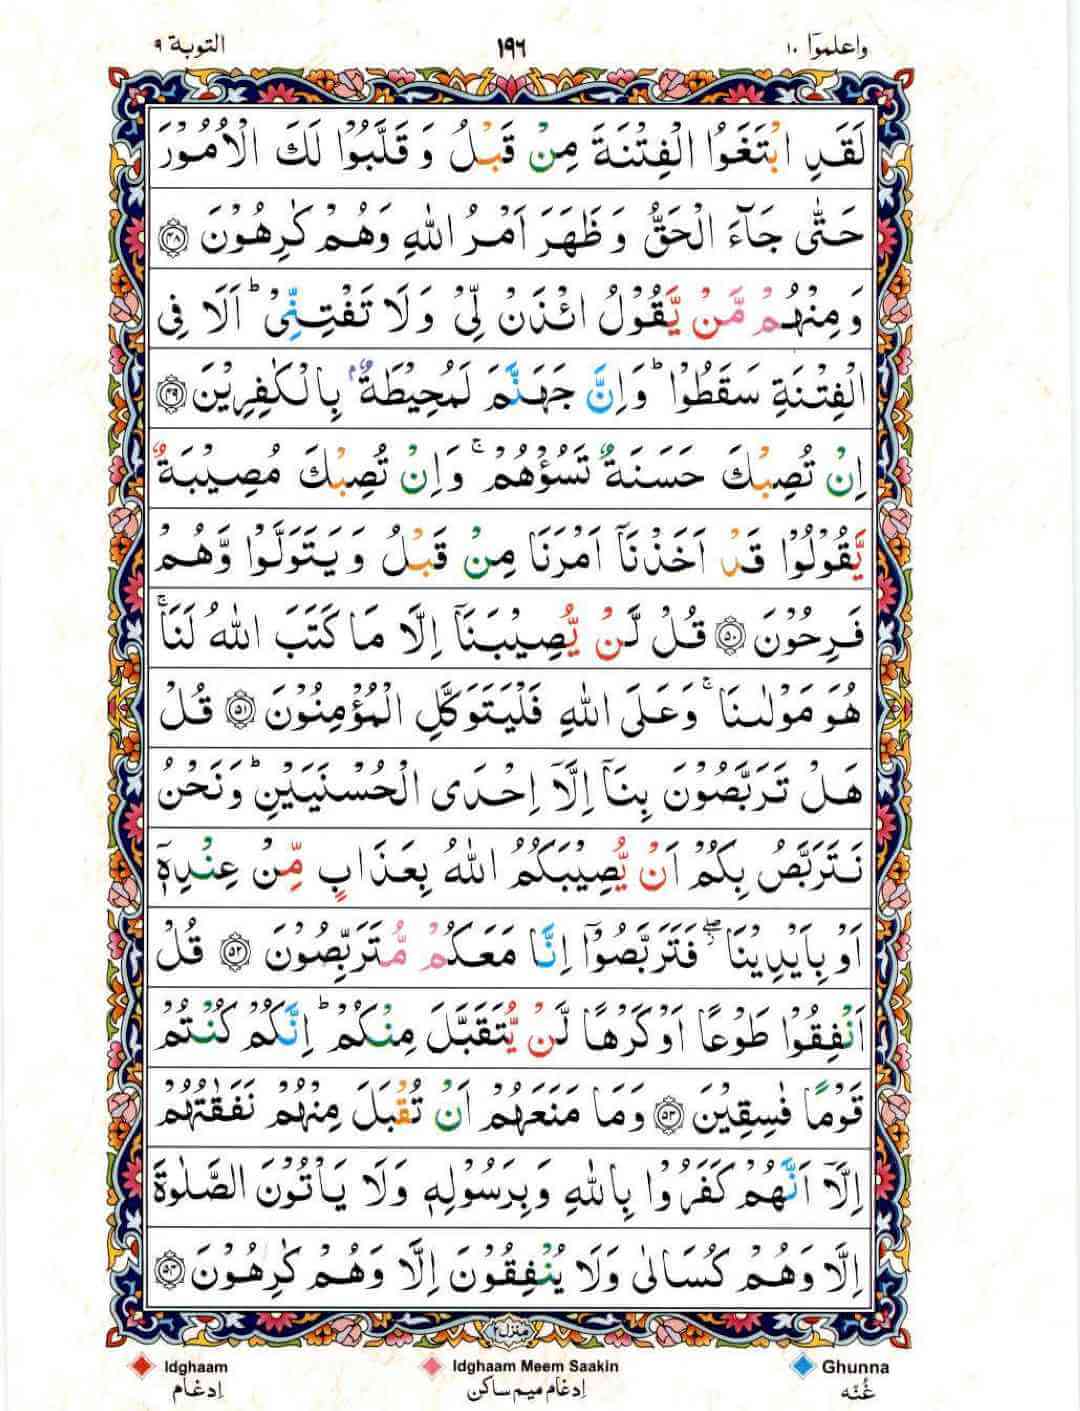 واعلموٓا ١٠ ١٩٦ التوبة ٩
لَقَدِ ابْتَغَوُا الْفِتْنَةَ مِنْ قَبْلُ وَ قَلَّبُوْا لَكَ الْاُمُوْرَ
حَتّٰى جَآءَ الْحَقُّ وَ ظَهَرَ اَمْرُ اللّٰهِ وَهُمْ كٰرِهُوْنَ ﴿۴۸﴾
وَ مِنْهُمْ مَّنْ يَّقُوْلُ ائْذَنْ لِّيْ وَ لَا تَفْتِنِّيْ ؕ اَلَا فِي
الْفِتْنَةِ سَقَطُوْا ؕ وَاِنَّ جَهَنَّمَ لَمُحِيْطَةٌۢ بِالْكٰفِرِيْنَ ﴿۴۹﴾
اِنْ تُصِبْكَ حَسَنَةٌ تَسُؤْهُمْ ۚ وَاِنْ تُصِبْكَ مُصِيْبَةٌ
يَّقُوْلُوْا قَدْ اَخَذْنَاۤ اَمْرَنَا مِنْ قَبْلُ وَ يَتَوَلَّوْا وَّهُمْ
فَرِحُوْنَ ﴿۵۰﴾ قُلْ لَّنْ يُّصِيْبَنَاۤ اِلَّا مَا كَتَبَ اللّٰهُ لَنَا ۚ
هُوَ مَوْلٰىنَا ۚ وَعَلَى اللّٰهِ فَلْيَتَوَكَّلِ الْمُؤْمِنُوْنَ ﴿۵۱﴾ قُلْ
هَلْ تَرَبَّصُوْنَ بِنَاۤ اِلَّاۤ اِحْدَى الْحُسْنَيَيْنِ ؕ وَنَحْنُ
نَتَرَبَّصُ بِكُمْ اَنْ يُّصِيْبَكُمُ اللّٰهُ بِعَذَابٍ مِّنْ عِنْدِهٖۤ
اَوْ بِاَيْدِيْنَا ۖ فَتَرَبَّصُوْۤا اِنَّا مَعَكُمْ مُّتَرَبِّصُوْنَ ﴿۵۲﴾ قُلْ
اَنْفِقُوْا طَوْعًا اَوْ كَرْهًا لَّنْ يُّتَقَبَّلَ مِنْكُمْ ؕ اِنَّكُمْ كُنْتُمْ
قَوْمًا فٰسِقِيْنَ ﴿۵۳﴾ وَمَا مَنَعَهُمْ اَنْ تُقْبَلَ مِنْهُمْ نَفَقٰتُهُمْ
اِلَّاۤ اَنَّهُمْ كَفَرُوْا بِاللّٰهِ وَبِرَسُوْلِهٖ وَلَا يَاْتُوْنَ الصَّلٰوةَ
اِلَّا وَهُمْ كُسَالٰى وَلَا يُنْفِقُوْنَ اِلَّا وَهُمْ كٰرِهُوْنَ ﴿۵۴﴾
منزل ٢
Idghaam Idghaam Meem Saakin Ghunna
اِدغَام اِدغَام میم ساکن غُنّه